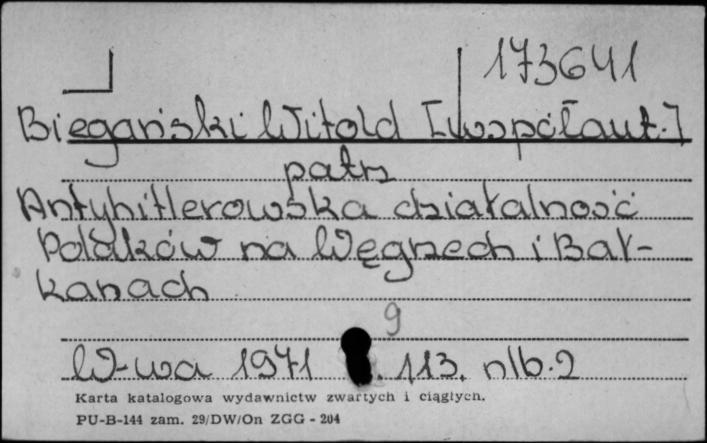 173641
Biegański Witold [współaut.]
patrz
Antyhitlerowska działalność
Polaków na Węgrzech i Bał-
kanach
9
W-wa 1971 113, nlb. 2
Karta katalogowa wydawnictw zwartych i ciągłych.
PU-B-144 zam. 29/DW/On ZGG - 204